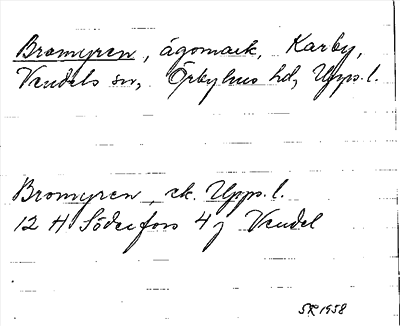 Bromyren, ägomark, Karby,
Vendels sn, Örbyhus hd, Upps. l.
Bromyren, ek. Upps. l.
12 H Söderfors 4 j Vendel
SR 1958